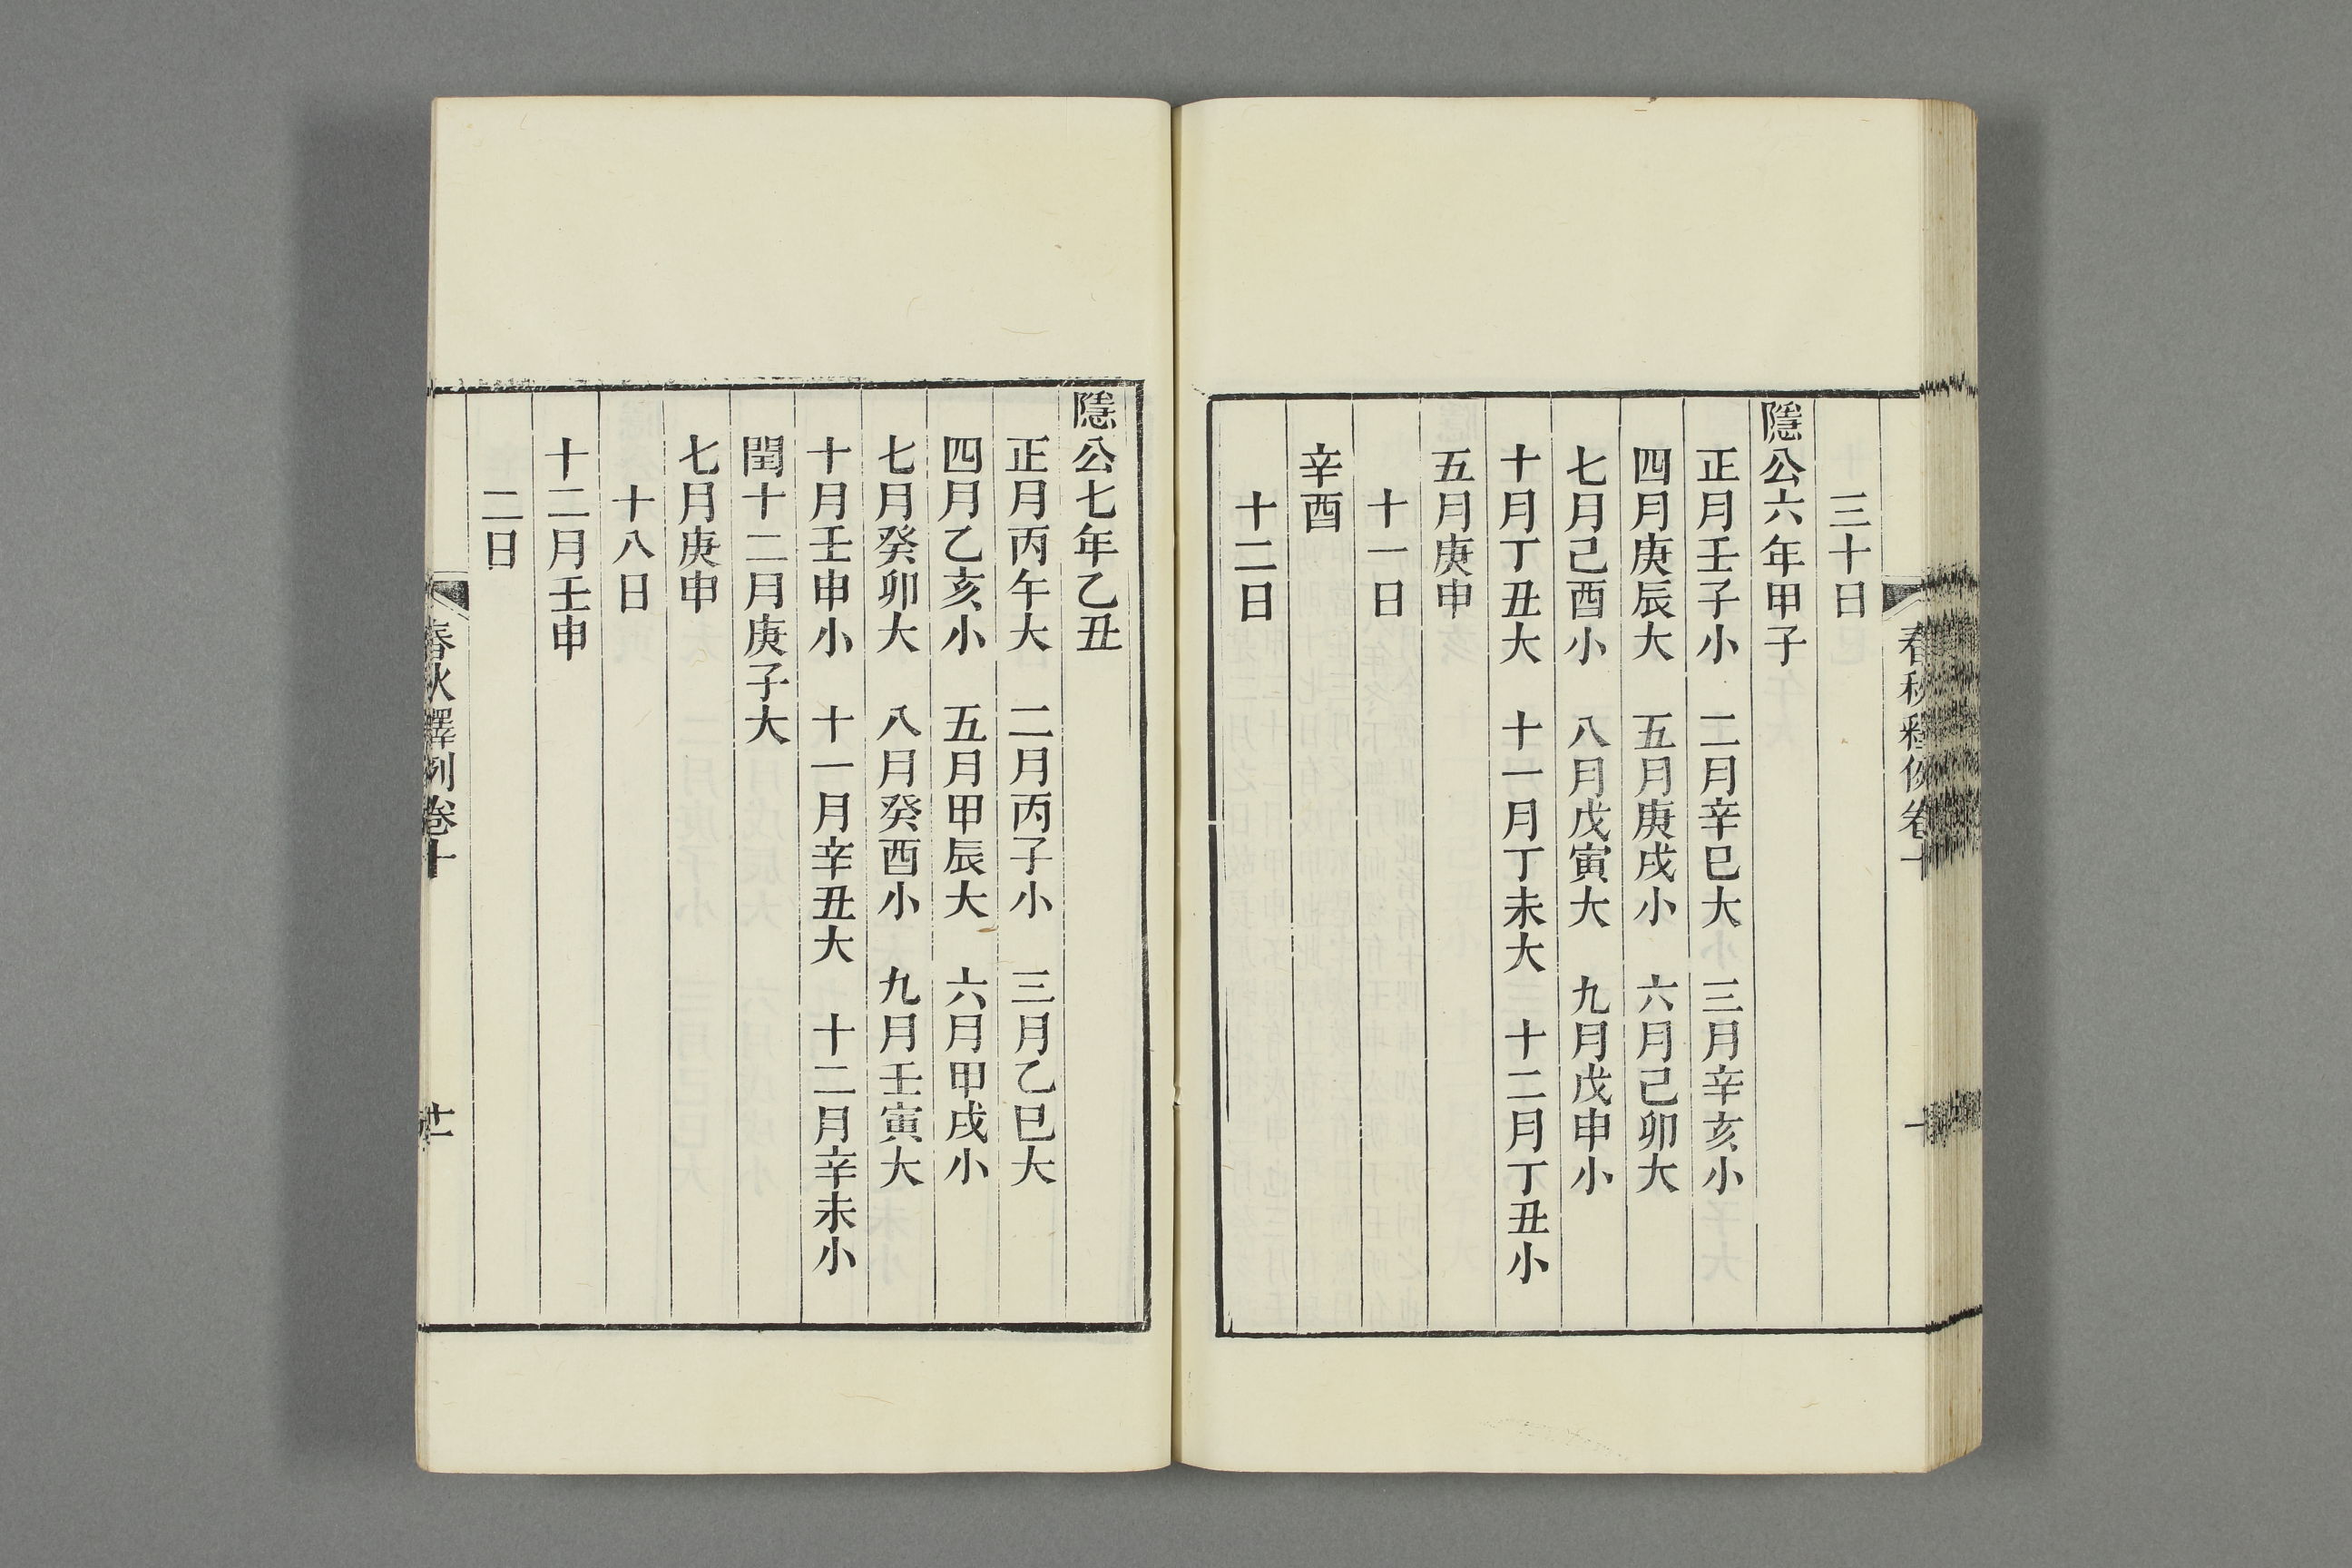 三十日
隱公六年甲子
正月壬子小　二月辛巳大　三月辛亥小
四月庚辰大　五月庚戌小　六月己卯大
七月己酉小　八月戊寅大　九月戊申小
十月丁丑大　十一月丁未大　十二月丁丑小
五月庚申
十一日
辛酉
十二日
隱公七年乙丑
正月丙午大　二月丙子小　三月乙巳大
四月乙亥小　五月甲辰大　六月甲戌小
七月癸卯大　八月癸酉小　九月壬寅大
十月壬申小　十一月辛丑大　十二月辛未小
閏十二月庚子大
七月庚申
十八日
十二月壬申
二日
春秋釋例卷十